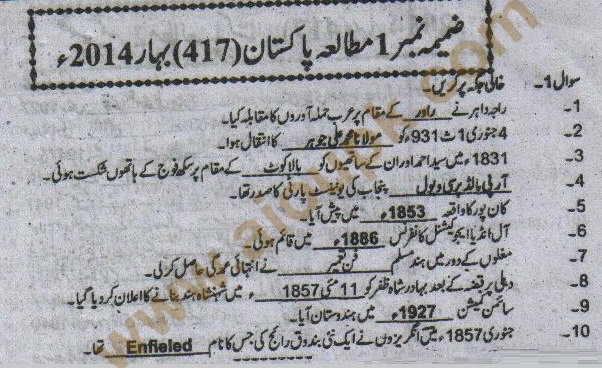 ضمیمہ نمبر 1 مطالعہ پاکستان (417) بہار 2014ء
سوال 1۔ خالی جگہ پر کریں۔
1۔ راجہ داہر نے راور کے مقام پر عرب حملہ آوروں کا مقابلہ کیا۔
2۔ 4 جنوری 1931ء کو مولانا محمد علی جوہر کا انتقال ہوا۔
3۔ 1831ء میں سید احمد اور ان کے ساتھیوں کو بالاکوٹ کے مقام پر سکھ فوج کے ہاتھوں شکست ہوئی۔
4۔ پنجاب کی یونینسٹ پارٹی کا صدر تھا۔
5۔ کان پور کا واقعہ 1853ء میں پیش آیا۔
6۔ آل انڈیا ایجوکیشنل کانفرنس 1886ء میں قائم ہوئی۔
7۔ مغلوں کے دور میں ہند مسلم فن تعمیر نے انتہائی عمدگی حاصل کر لی۔
8۔ دہلی پر قبضہ کے بعد بہادر شاہ ظفر کو 11 مئی 1857ء میں شہنشاہ ہند بنانے کا اعلان کر دیا گیا۔
9۔ سائمن کمیشن 1927ء میں ہندوستان آیا۔
10۔ جنوری 1857ء میں انگریزوں نے ایک نئی بندوق رائج کی جس کا نام Enfieled تھا۔